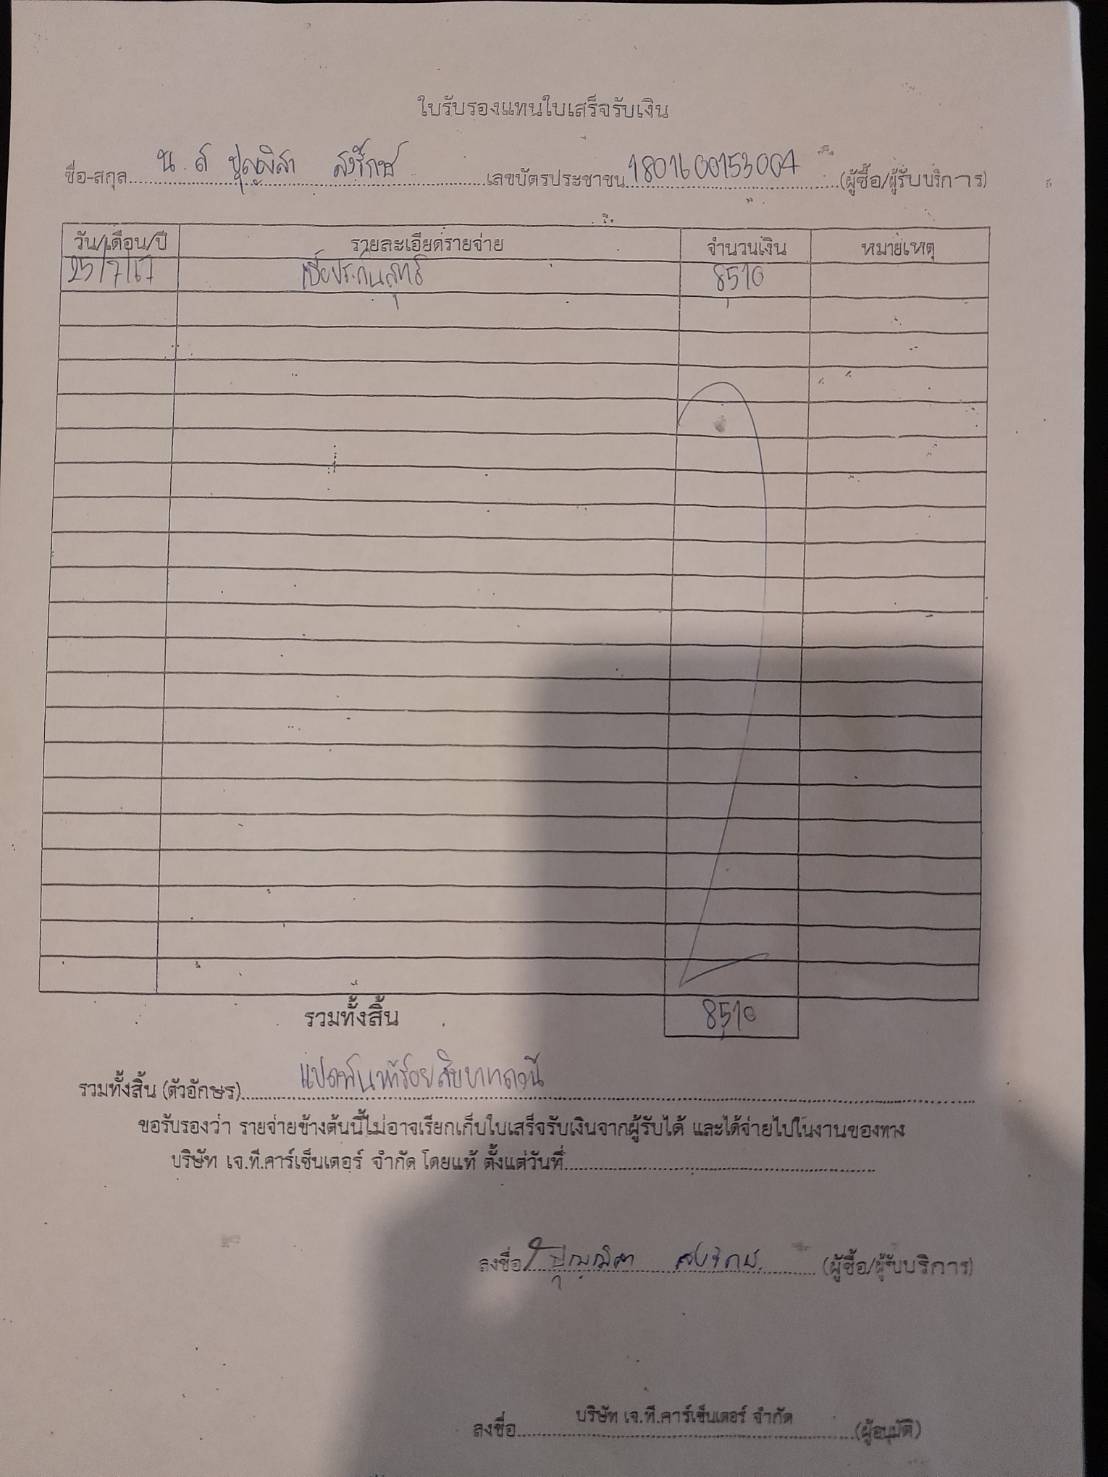 ใบรับรองแทนใบเสร็จรับเงิน
ชื่อ-สกุล น.ส ปุญญิสา สงรักษ์ เลขบัตรประชาชน 1801600153007 (ผู้ซื้อ/ผู้รับบริการ)
วัน/เดือน/ปี รายละเอียดรายจ่าย จำนวนเงิน หมายเหตุ
25/7/67 8510
รวมทั้งสิ้น 8510
รวมทั้งสิ้น (ตัวอักษร) แปดพันห้าร้อยสิบบาทถ้วน
ขอรับรองว่า รายจ่ายข้างต้นนี้ไม่อาจเรียกเก็บใบเสร็จรับเงินจากผู้รับได้ และได้จ่ายไปในงานของทาง
บริษัท เจ.ที.คาร์เซ็นเตอร์ จำกัด โดยแท้ ตั้งแต่วันที่
ลงชื่อ ปุญญิสา สงรักษ์ (ผู้ซื้อ/ผู้รับบริการ)
บริษัท เจ.ที.คาร์เซ็นเตอร์ จำกัด
ลงชื่อ (ผู้อนุมัติ)